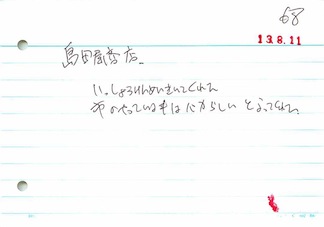 68
13.8.11
島田屋商店
いっしょうけんめいきいてくれた
市のやっている事はバカらしいと言ってくれた